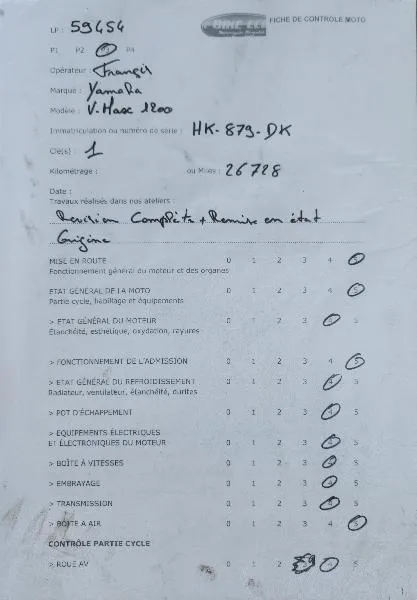 LP : 59454
FICHE DE CONTRÔLE MOTO
P1 P2 P3 P4
Opérateur : Françis
Marque : Yamaha
Modèle : V-Max 1200
Immatriculation ou numéro de série : HK-879-DK
Clé(s) : 1
Kilométrage : ou Miles : 26728
Date :
Travaux réalisés dans nos ateliers :
Revision Complète + Remise en état
Origine
MISE EN ROUTE 0 1 2 3 4 5
Fonctionnement général du moteur et des organes
ETAT GÉNÉRAL DE LA MOTO 0 1 2 3 4 5
Partie cycle, habillage et équipements
> ETAT GÉNÉRAL DU MOTEUR 0 1 2 3 4 5
Étanchéité, esthétique, oxydation, rayures
> FONCTIONNEMENT DE L'ADMISSION 0 1 2 3 4 5
> ETAT GÉNÉRAL DU REFROIDISSEMENT 0 1 2 3 4 5
Radiateur, ventilateur, étanchéité, durites
> POT D'ÉCHAPPEMENT 0 1 2 3 4 5
> EQUIPEMENTS ÉLECTRIQUES
ET ÉLECTRONIQUES DU MOTEUR 0 1 2 3 4 5
> BOÎTE À VITESSES 0 1 2 3 4 5
> EMBRAYAGE 0 1 2 3 4 5
> TRANSMISSION 0 1 2 3 4 5
> BOITE A AIR 0 1 2 3 4 5
CONTRÔLE PARTIE CYCLE
> ROUE AV 0 1 2 4 5